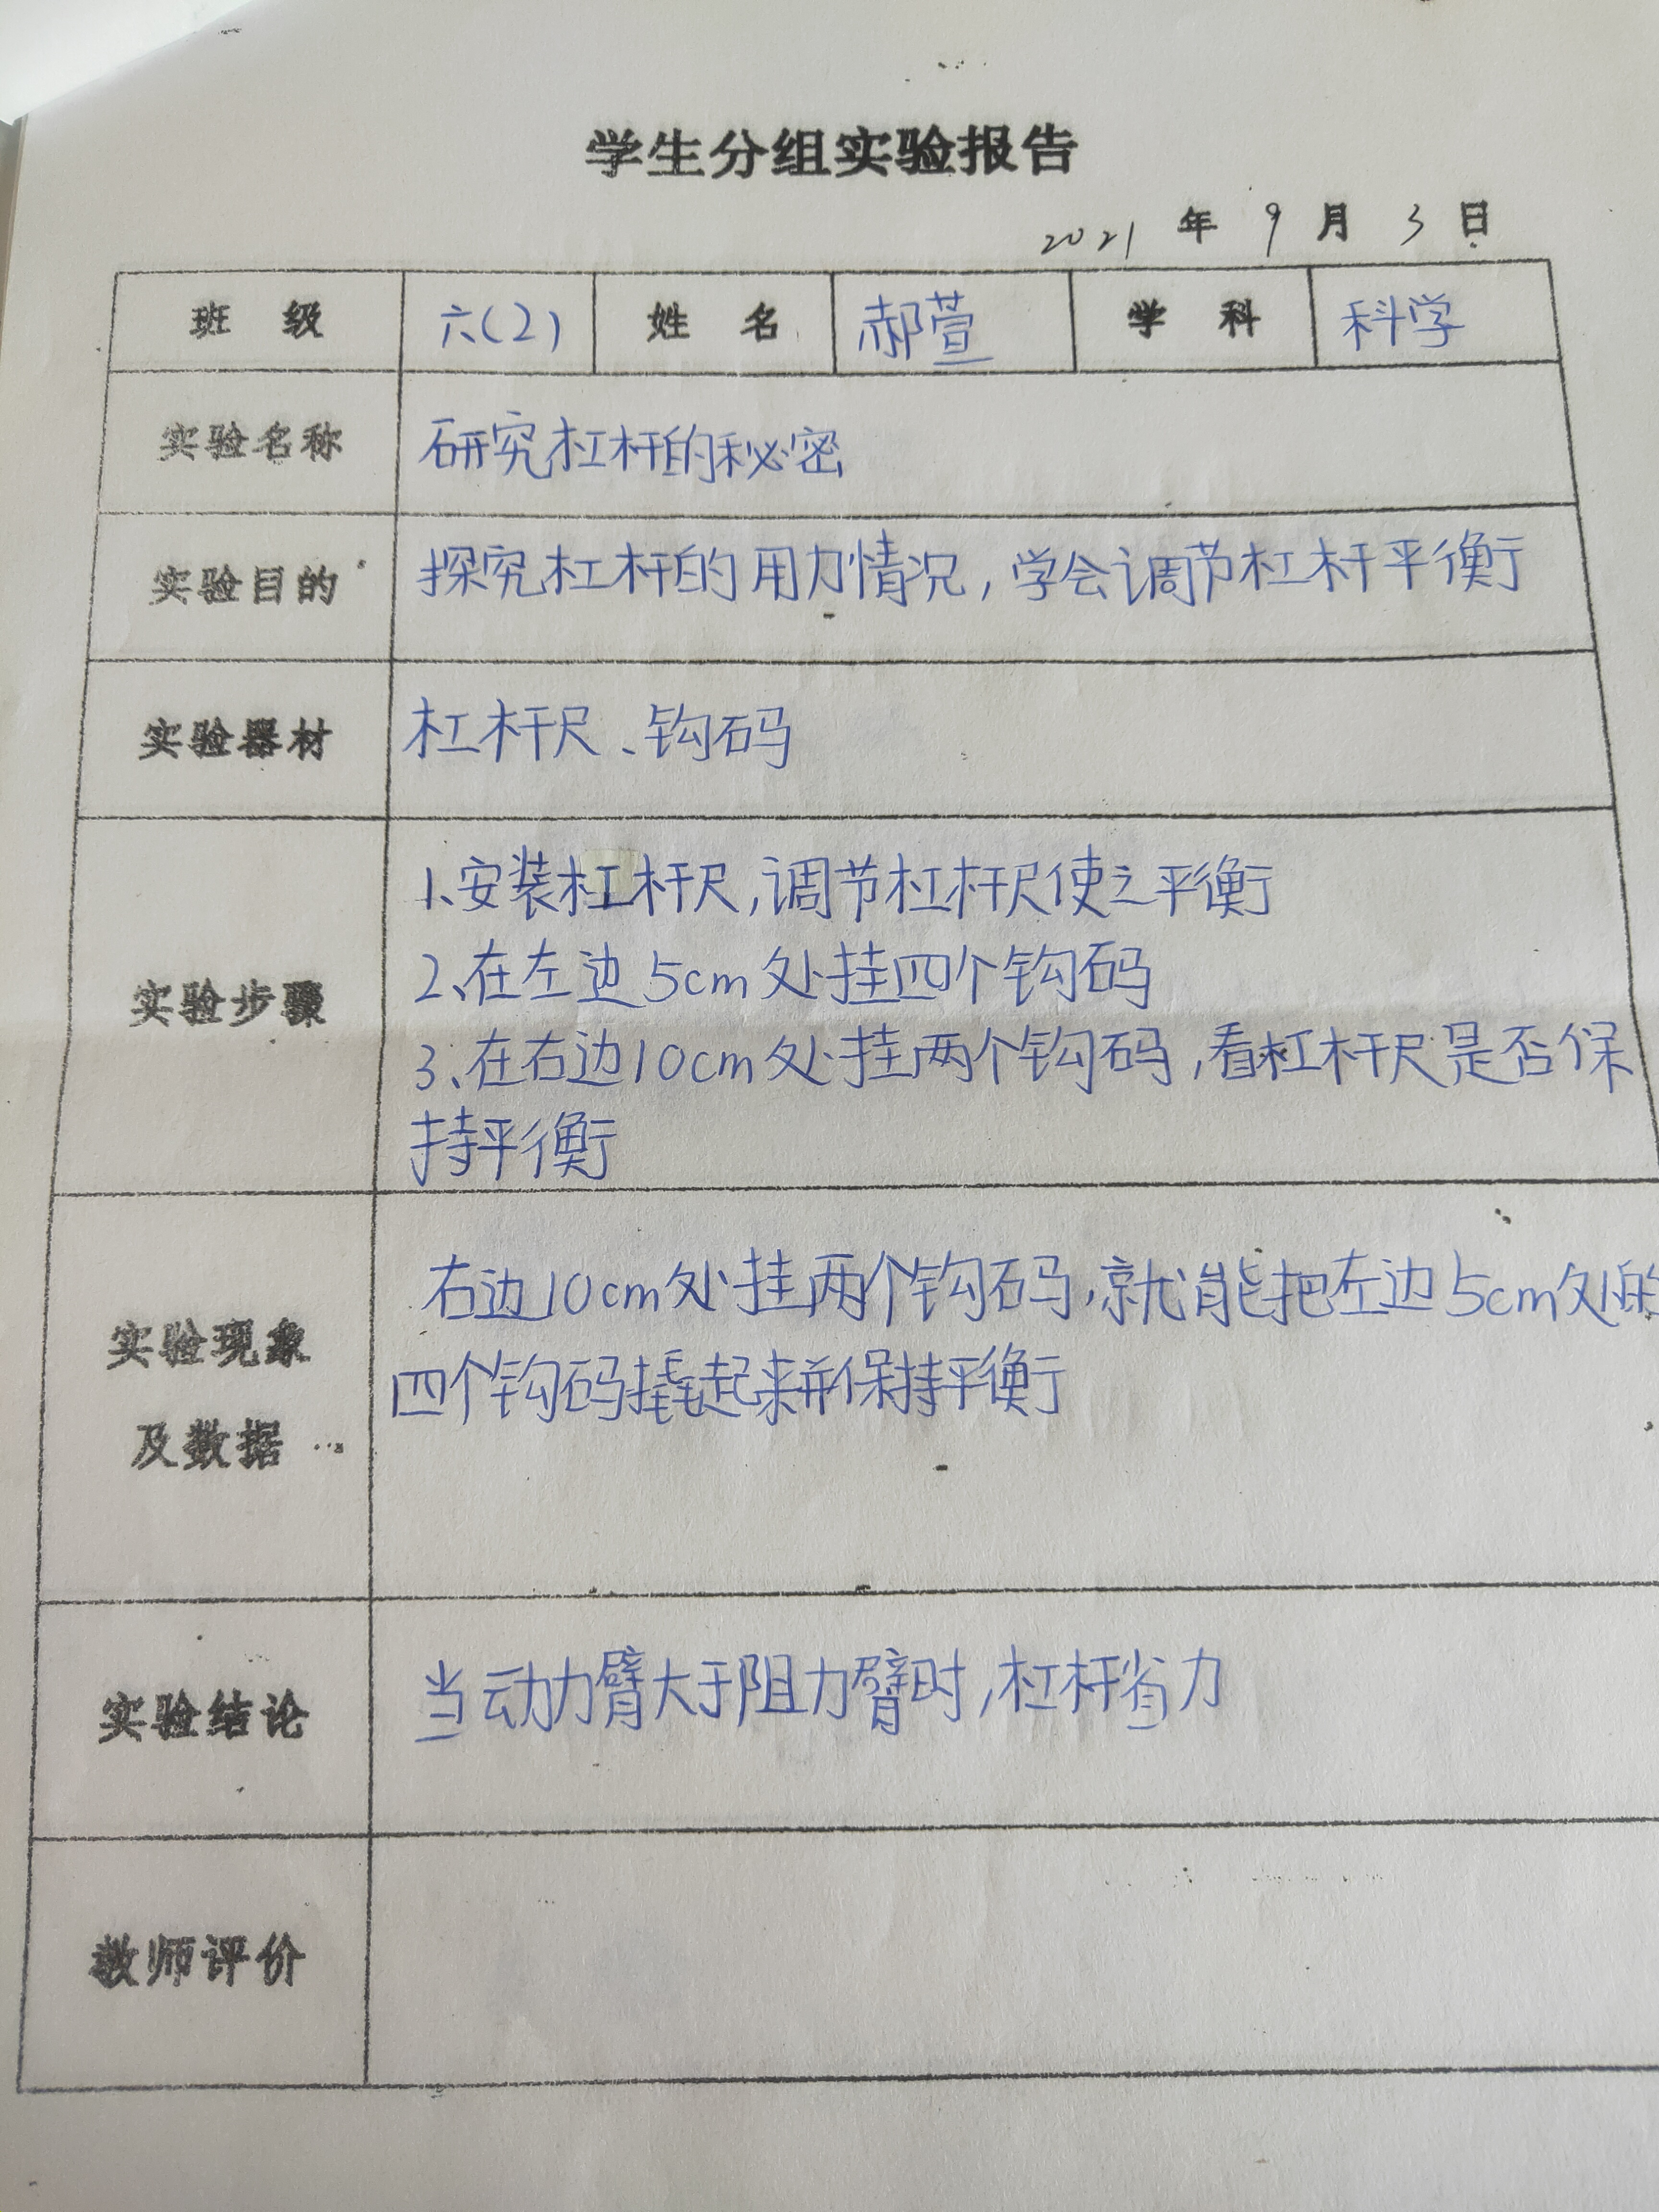 学生分组实验报告
2021 年 9 月 3 日
班 级 六(2) 姓 名 郝萱 学 科 科学
实验名称 研究杠杆的秘密
实验目的 探究杠杆的用力情况,学会调节杠杆平衡
实验器材 杠杆尺、钩码
实验步骤
1、安装杠杆尺,调节杠杆尺使之平衡
2、在左边5cm处挂四个钩码
3、在右边10cm处挂两个钩码,看杠杆尺是否保
持平衡
实验现象
及数据
右边10cm处挂两个钩码,就能把左边5cm处的
四个钩码撬起来并保持平衡
实验结论 当动力臂大于阻力臂时,杠杆省力
教师评价